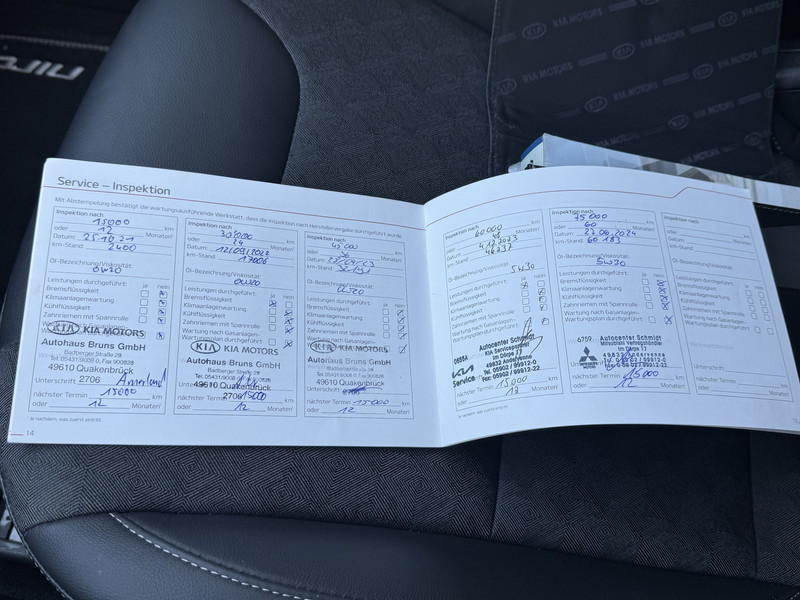 KIA MOTORS
KIA MOTORS
KIA MOTORS
Service – Inspektion
Mit Abstempelung bestätigt die wartungsausführende Werkstatt, dass die Inspektion nach Herstellervorgabe durchgeführt wurde.
Inspektion nach
15000 km
oder 12 Monaten!
Datum: 25.10.21
km-Stand: 2400
Öl-Bezeichnung/Viskosität:
0W20
Leistungen durchgeführt: ja nein
Bremsflüssigkeit
Klimaanlagenwartung
Kühlflüssigkeit
Zahnriemen mit Spannrolle
KIA KIA MOTORS
Autohaus Bruns GmbH
Badberger Straße 29
Tel. 05431/9008-0, Fax 900828
49610 Quakenbrück
Unterschrift: 2706
nächster Termin: 15000 km
oder 12 Monaten!
Je nachdem, was zuerst eintritt.
14
Inspektion nach
30.000 km
oder 24 Monaten!
Datum: 12.09.2022
km-Stand:
Öl-Bezeichnung/Viskosität:
0W20
Leistungen durchgeführt: ja nein
Bremsflüssigkeit
Klimaanlagenwartung
Kühlflüssigkeit
Zahnriemen mit Spannrolle
Wartung nach Gasanlagen-
KIA KIA MOTORS
Autohaus Bruns GmbH
Badberger Straße 29
Tel. 05431/9008-0, Fax 900828
49610 Quakenbrück
2706
15000 km
oder 12 Monaten!
Inspektion nach
45000 km
oder 36 Monaten!
Datum:
km-Stand:
Öl-Bezeichnung/Viskosität:
Leistungen durchgeführt: ja nein
Bremsflüssigkeit
Klimaanlagenwartung
Kühlflüssigkeit
Zahnriemen mit Spannrolle
Wartung nach Gasanlagen-
KIA KIA MOTORS
Autohaus Bruns GmbH
Badberger Straße 29
Tel. 05431/9008-0, Fax 900828
49610 Quakenbrück
Unterschrift:
nächster Termin: 15000 km
oder 12 Monaten!
Inspektion nach
60000 km
oder 48 Monaten!
Datum: 4.12.2023
km-Stand: 46237
Öl-Bezeichnung/Viskosität:
5W30
Leistungen durchgeführt: ja nein
Bremsflüssigkeit
Klimaanlagenwartung
Kühlflüssigkeit
Zahnriemen mit Spannrolle
Wartung nach Gasanlagen-
Wartungsplan durchgeführt
Autocenter Schmidt
KIA Servicepartner
Im Dörpe 17
49832 Andervenne
Tel. 05902 / 99912-0
Fax: 05902 / 99912-22
KIA
Service
nächster Termin: 15000 km
oder 12 Monaten!
Inspektion nach
75000 km
oder 60 Monaten!
Datum: 27.06.2024
km-Stand: 60.183
Öl-Bezeichnung/Viskosität:
5W30
Leistungen durchgeführt: ja nein
Bremsflüssigkeit
Klimaanlagenwartung
Kühlflüssigkeit
Zahnriemen mit Spannrolle
Wartung nach Gasanlagen-
Wartungsplan durchgeführt
6759
Autocenter Schmidt
Mitsubishi Vertragshändler
Im Dörpe 17
49832 Andervenne
MITSUBISHI
nächster Termin: 15000 km
oder 12 Monaten!
Inspektion nach
km
oder Monaten!
Datum:
km-Stand:
Öl-Bezeichnung/Viskosität:
Leistungen durchgeführt:
Bremsflüssigkeit
Klimaanlagenwartung
Kühlflüssigkeit
Zahnriemen mit Spannrolle
Wartung nach Gasanlagen-
Wartungsplan durchgeführt
Unterschrift:
nächster Termin:
oder